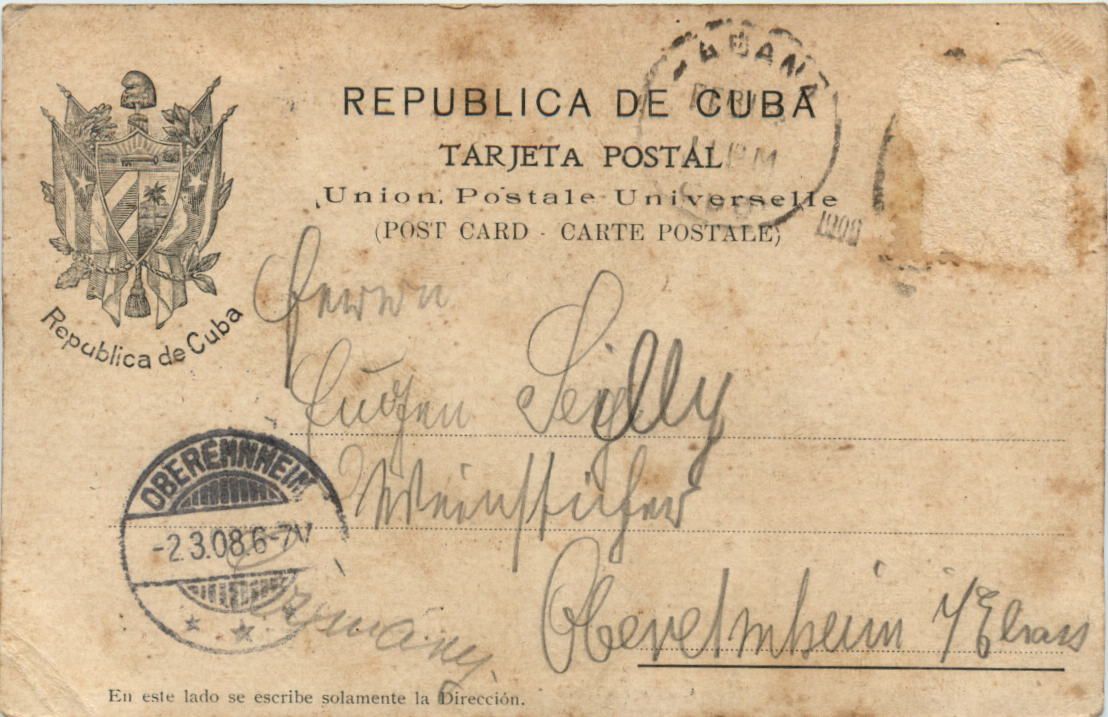 REPUBLICA DE CUBA
TARJETA POSTAL
Union Postale Universelle
(POST CARD - CARTE POSTALE)
Republica de Cuba
Herrn
Eugen
OBEREHNHEIM
-2.3.08.6-7V
Germany.
Oberehnheim i/Elsass
En este lado se escribe solamente la Dirección.